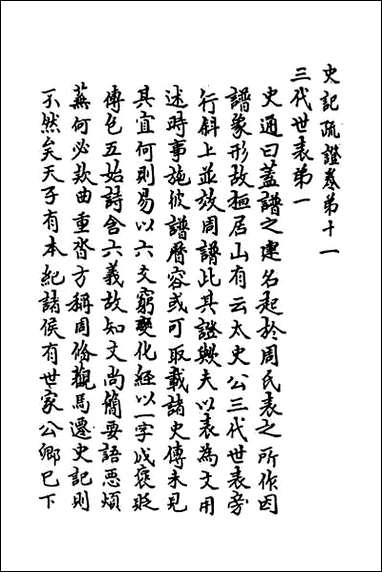 史記疏證卷第十一
三代世表第一
史通曰蓋譜之建名起於周氏表之所作因
譜象形故桓君山有云太史公三代世表旁
行斜上並放周譜此其證歟夫以表為文用
述時事施彼譜曆容或可取載諸史傳未見
其宜何則易以六爻窮變化經以一字成褒貶
傳包五始詩含六義故知文尚簡要語惡煩
蕪何必款曲重沓方稱周俻觀馬遷史記則
不然矣天子有本紀諸侯有世家公卿已下